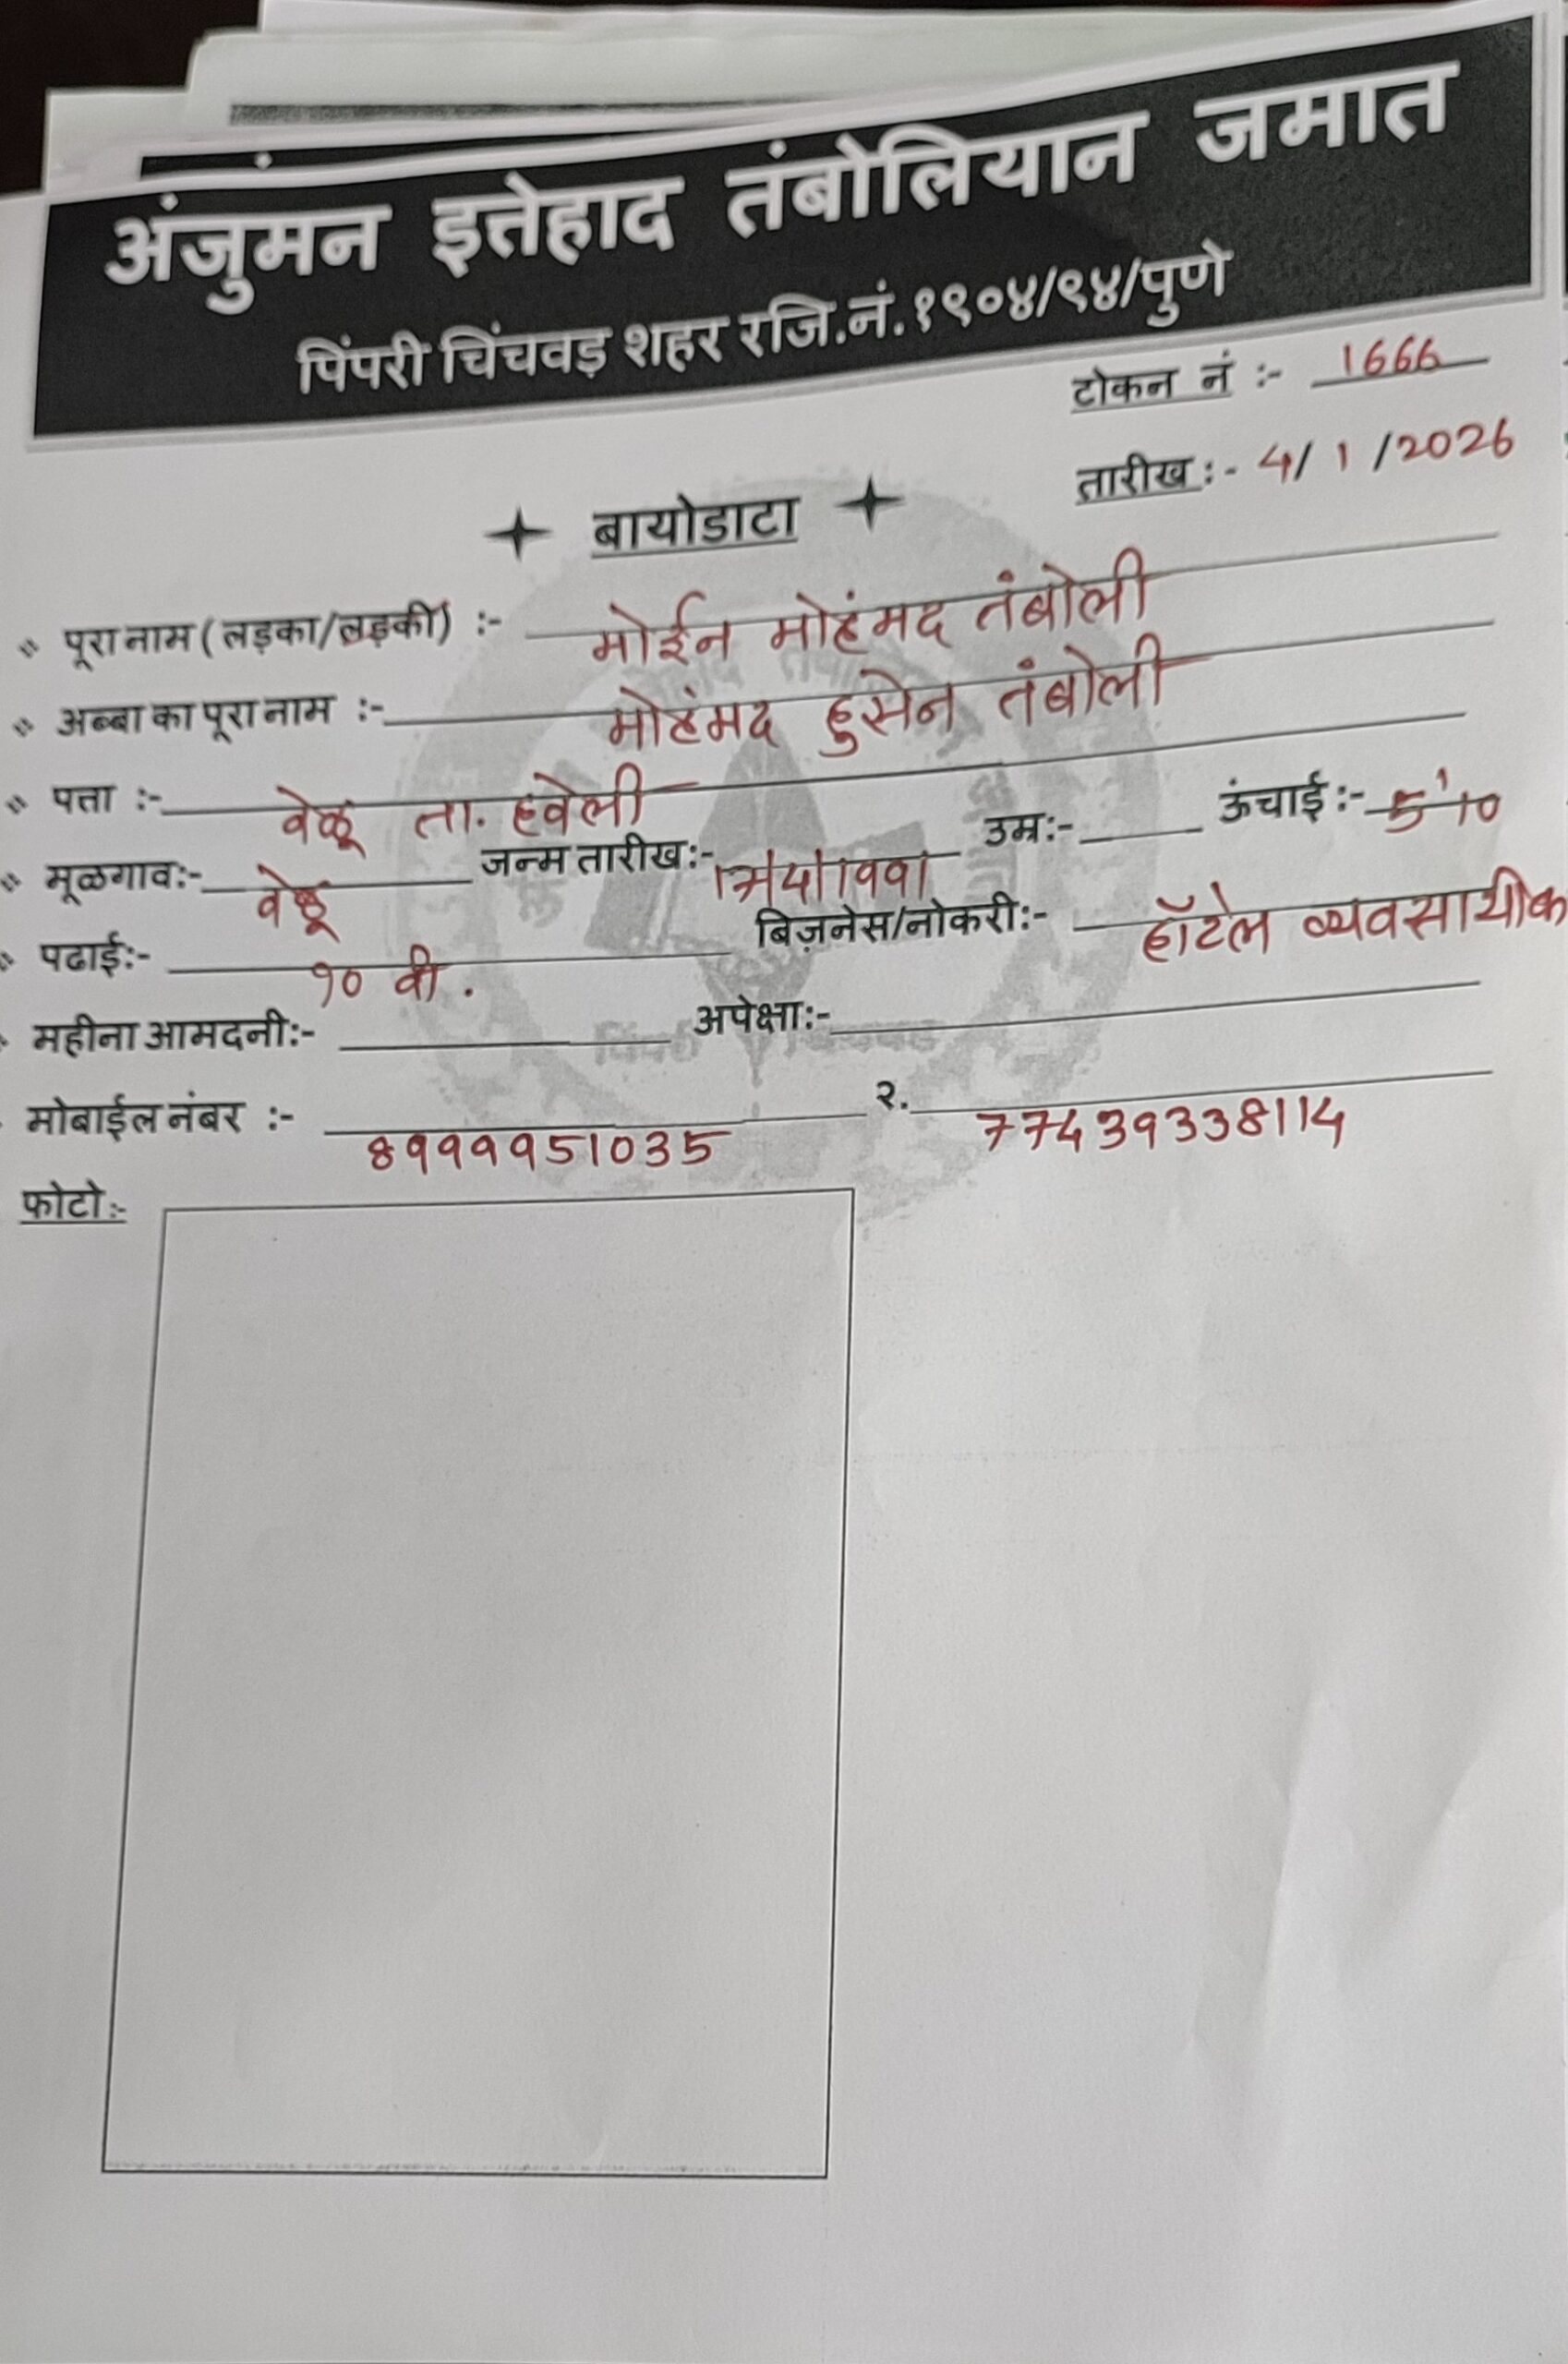 अंजुमन इत्तेहाद तंबोलियान जमात
पिंपरी चिंचवड़ शहर रजि.नं.१९०४/९४/पुणे
टोकन नं :- 1666
तारीख :- 4/1/2026
बायोडाटा
पूरा नाम (लड़का/लड़की) :- मोईन मोहंमद तंबोली
अब्बा का पूरा नाम :- मोहंमद हुसेन तंबोली
पत्ता :- वेळू ता. हवेली
मूळगाव:- वेळू जन्म तारीख:- उम्र:- ऊंचाई :- 5'10
पढाई:- १० वी. बिज़नेस/नोकरी:- हॉटेल व्यवसायीक
महीना आमदनी:- अपेक्षा:-
मोबाईल नंबर :- 8999951035 २. 77439338114
फोटो:-